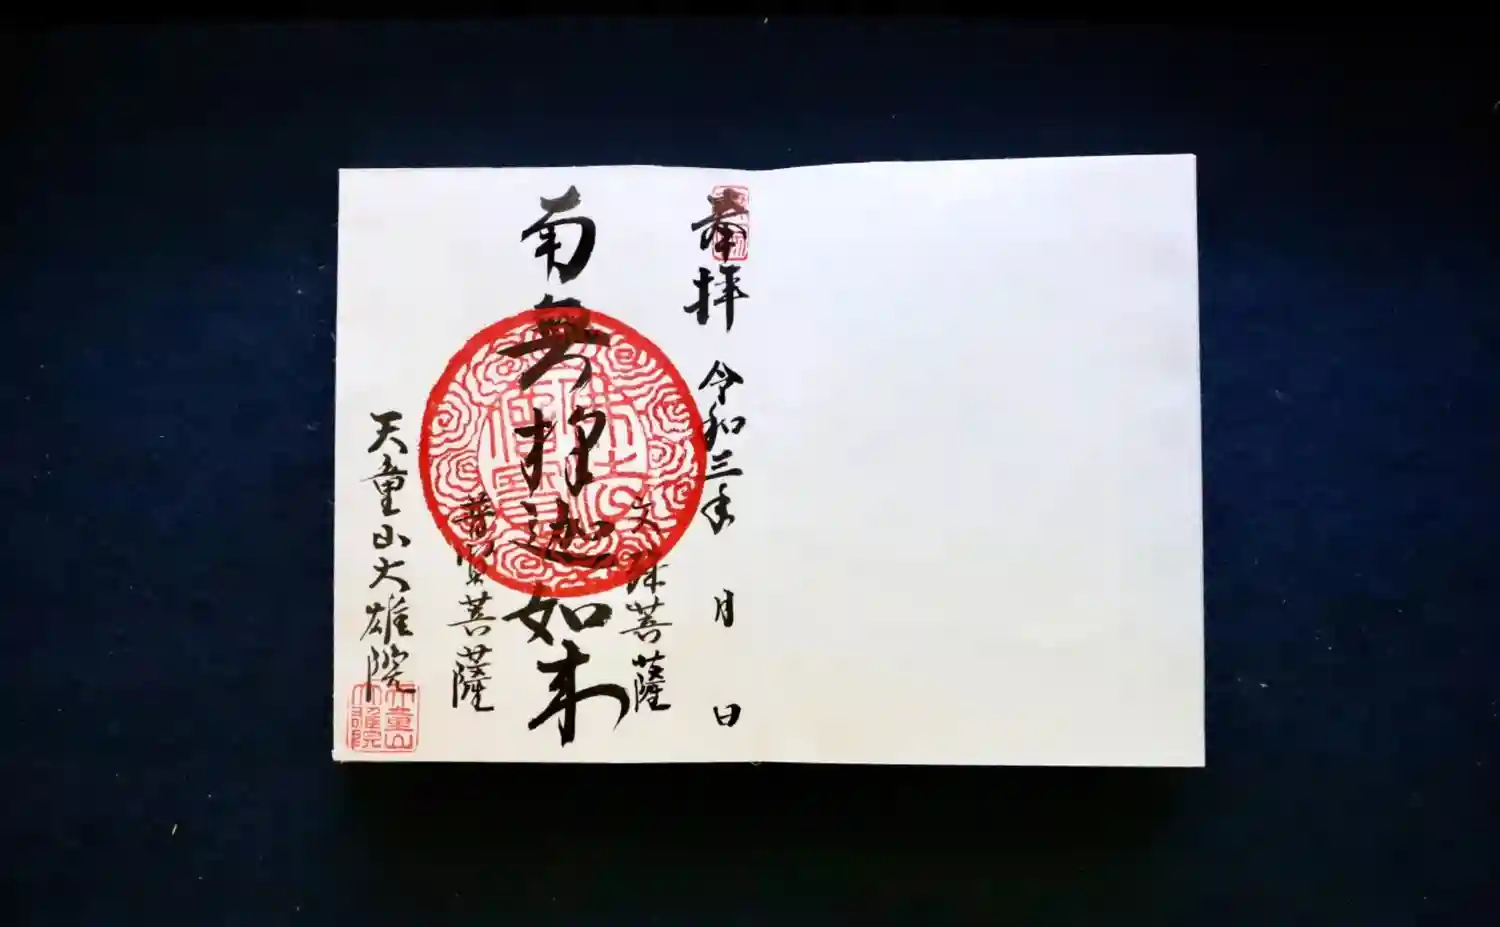 奉拝 令和三年 月 日
文殊菩薩
南無釈迦如来
普賢菩薩
天童山大雄院
天童山
大雄院